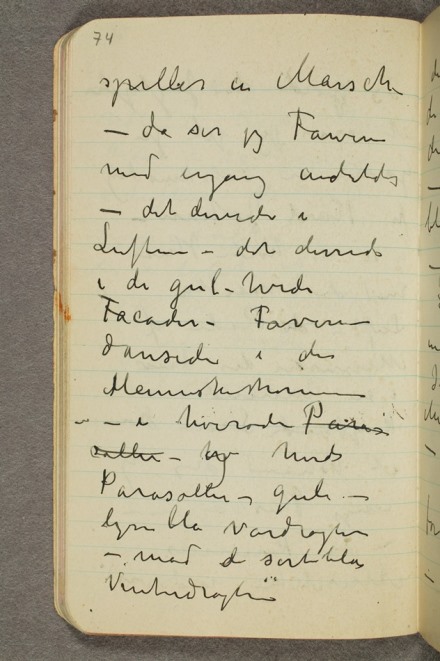 74
spilles en Marsch
– da ser jeg Farven
med engang anderledes
– det dirrede i
Luften – det dirrede
i de gul-hvide
Facader – Farvene
dansede i de
Menneskestrømmen
– i høirøde Para-
soller – og hvide
Parasoller – gule –
lyse blå Vårdragter
– mod de sortblå
Vinterdragter